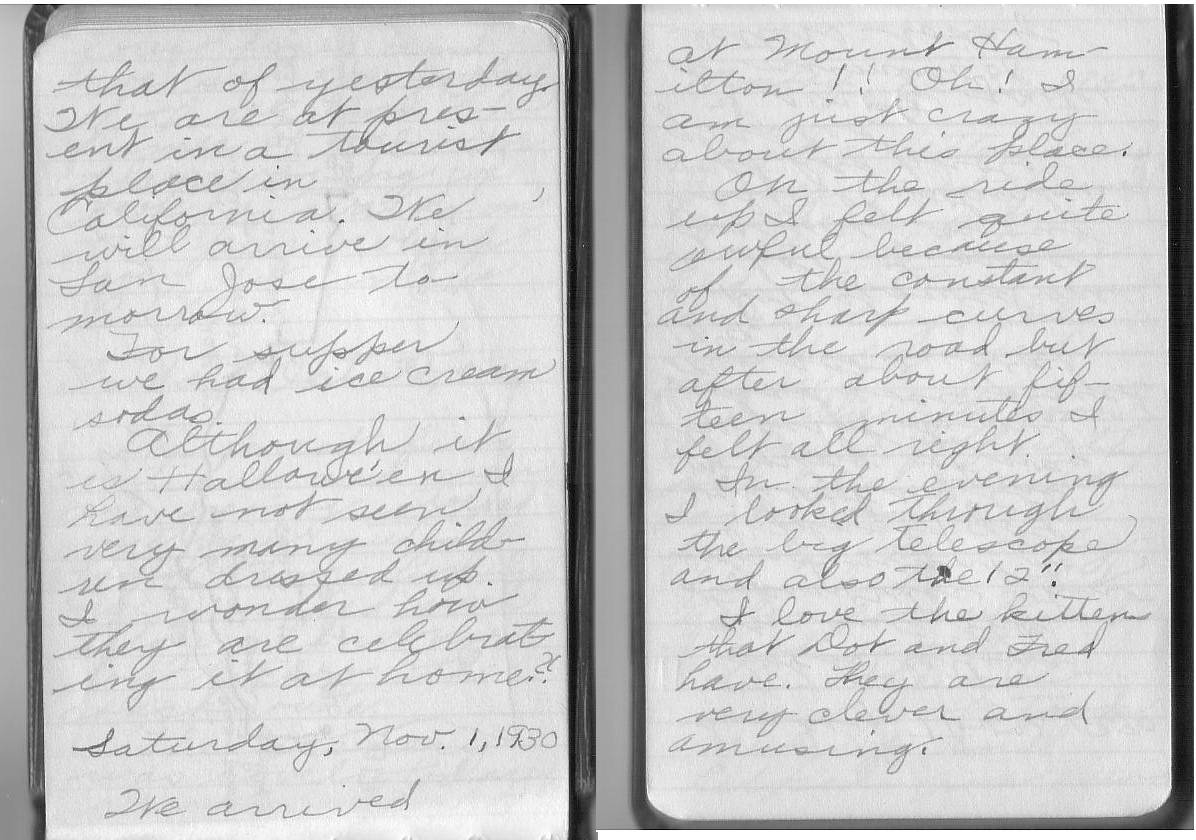 that of yesterday.
We are at pres-
ent in a tourist
place in
California. We
will arrive in
San Jose to
morrow.
For supper
we had ice cream
sodas.
Although it
is Hallowe'en I
have not seen
very many child-
ren dressed up.
I wonder how
they are celebrat-
ing it at home??
Saturday, Nov. 1, 1930
We arrived
at Mount Ham-
ilton !! Oh! I
am just crazy
about this place.
On the ride
up I felt quite
awful because
of the constant
and sharp curves
in the road but
after about fif-
teen minutes I
felt all right.
In the evening
I looked through
the big telescope
and also the 12".
I love the kitten
that Dot and Fred
have. They are
very clever and
amusing.